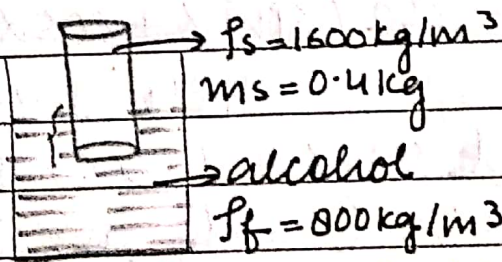 ρs=1600kg/m³
ms=0.4kg
alcohol
ρf=800kg/m³